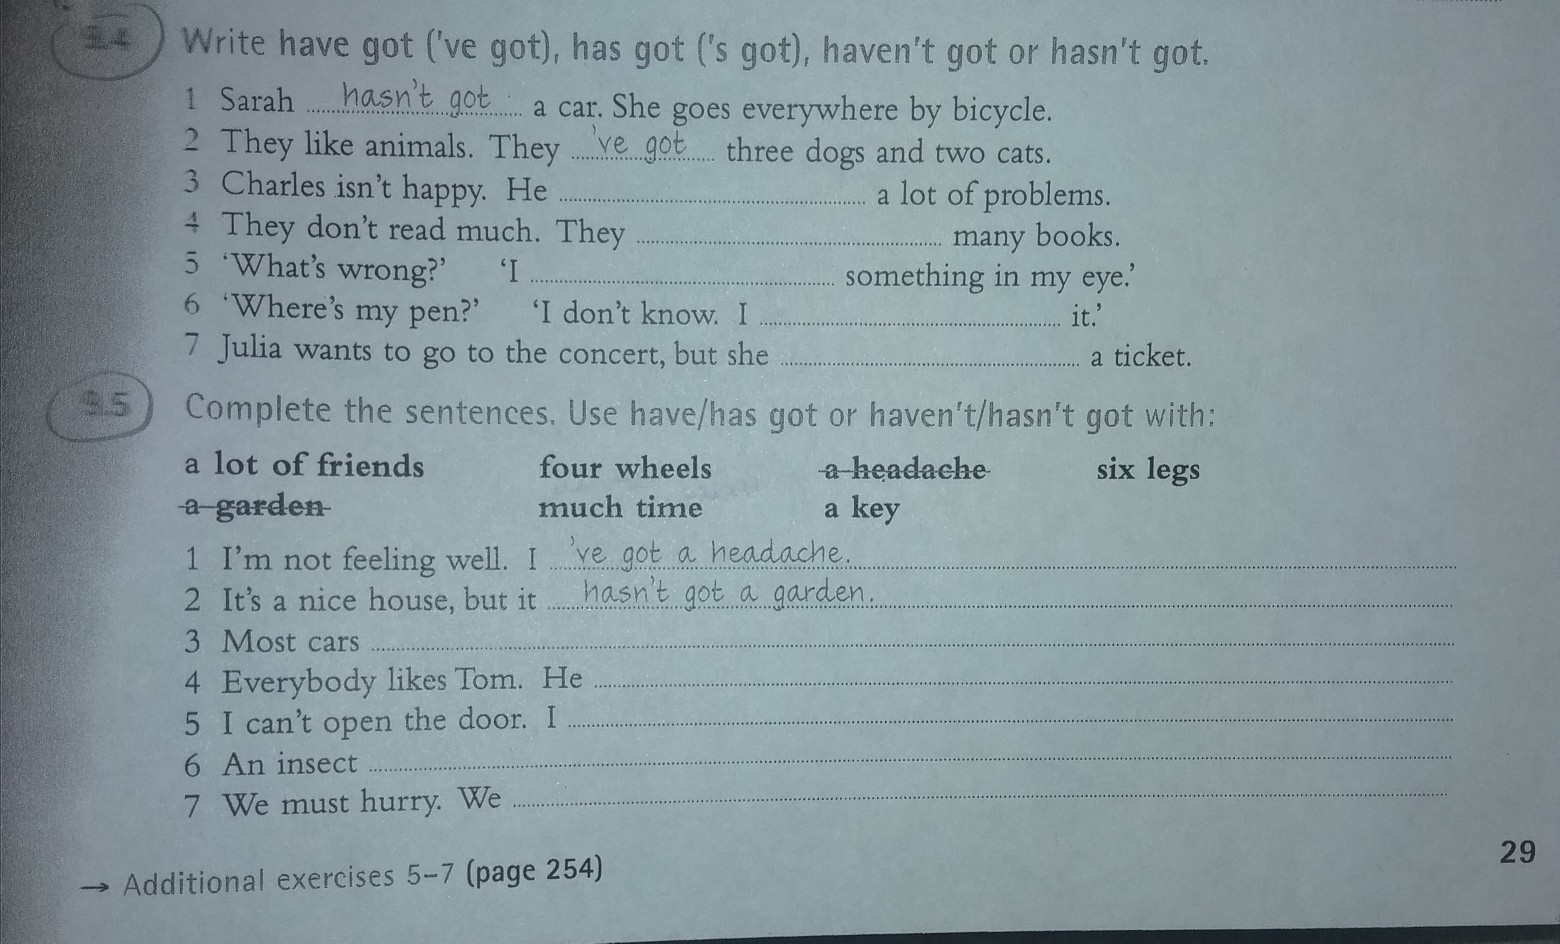 9.4 Write have got ('ve got), has got ('s got), haven't got or hasn't got.
1 Sarah hasn't got a car. She goes everywhere by bicycle.
2 They like animals. They 've got three dogs and two cats.
3 Charles isn't happy. He ........ a lot of problems.
4 They don't read much. They ........ many books.
5 ‘What's wrong?’ ‘I ........ something in my eye.’
6 ‘Where's my pen?’ ‘I don't know. I ........ it.’
7 Julia wants to go to the concert, but she ........ a ticket.
9.5 Complete the sentences. Use have/has got or haven't/hasn't got with:
a lot of friends four wheels a headache six legs
a garden much time a key
1 I'm not feeling well. I 've got a headache.
2 It's a nice house, but it hasn't got a garden.
3 Most cars ........
4 Everybody likes Tom. He ........
5 I can't open the door. I ........
6 An insect ........
7 We must hurry. We ........
29
→ Additional exercises 5–7 (page 254)